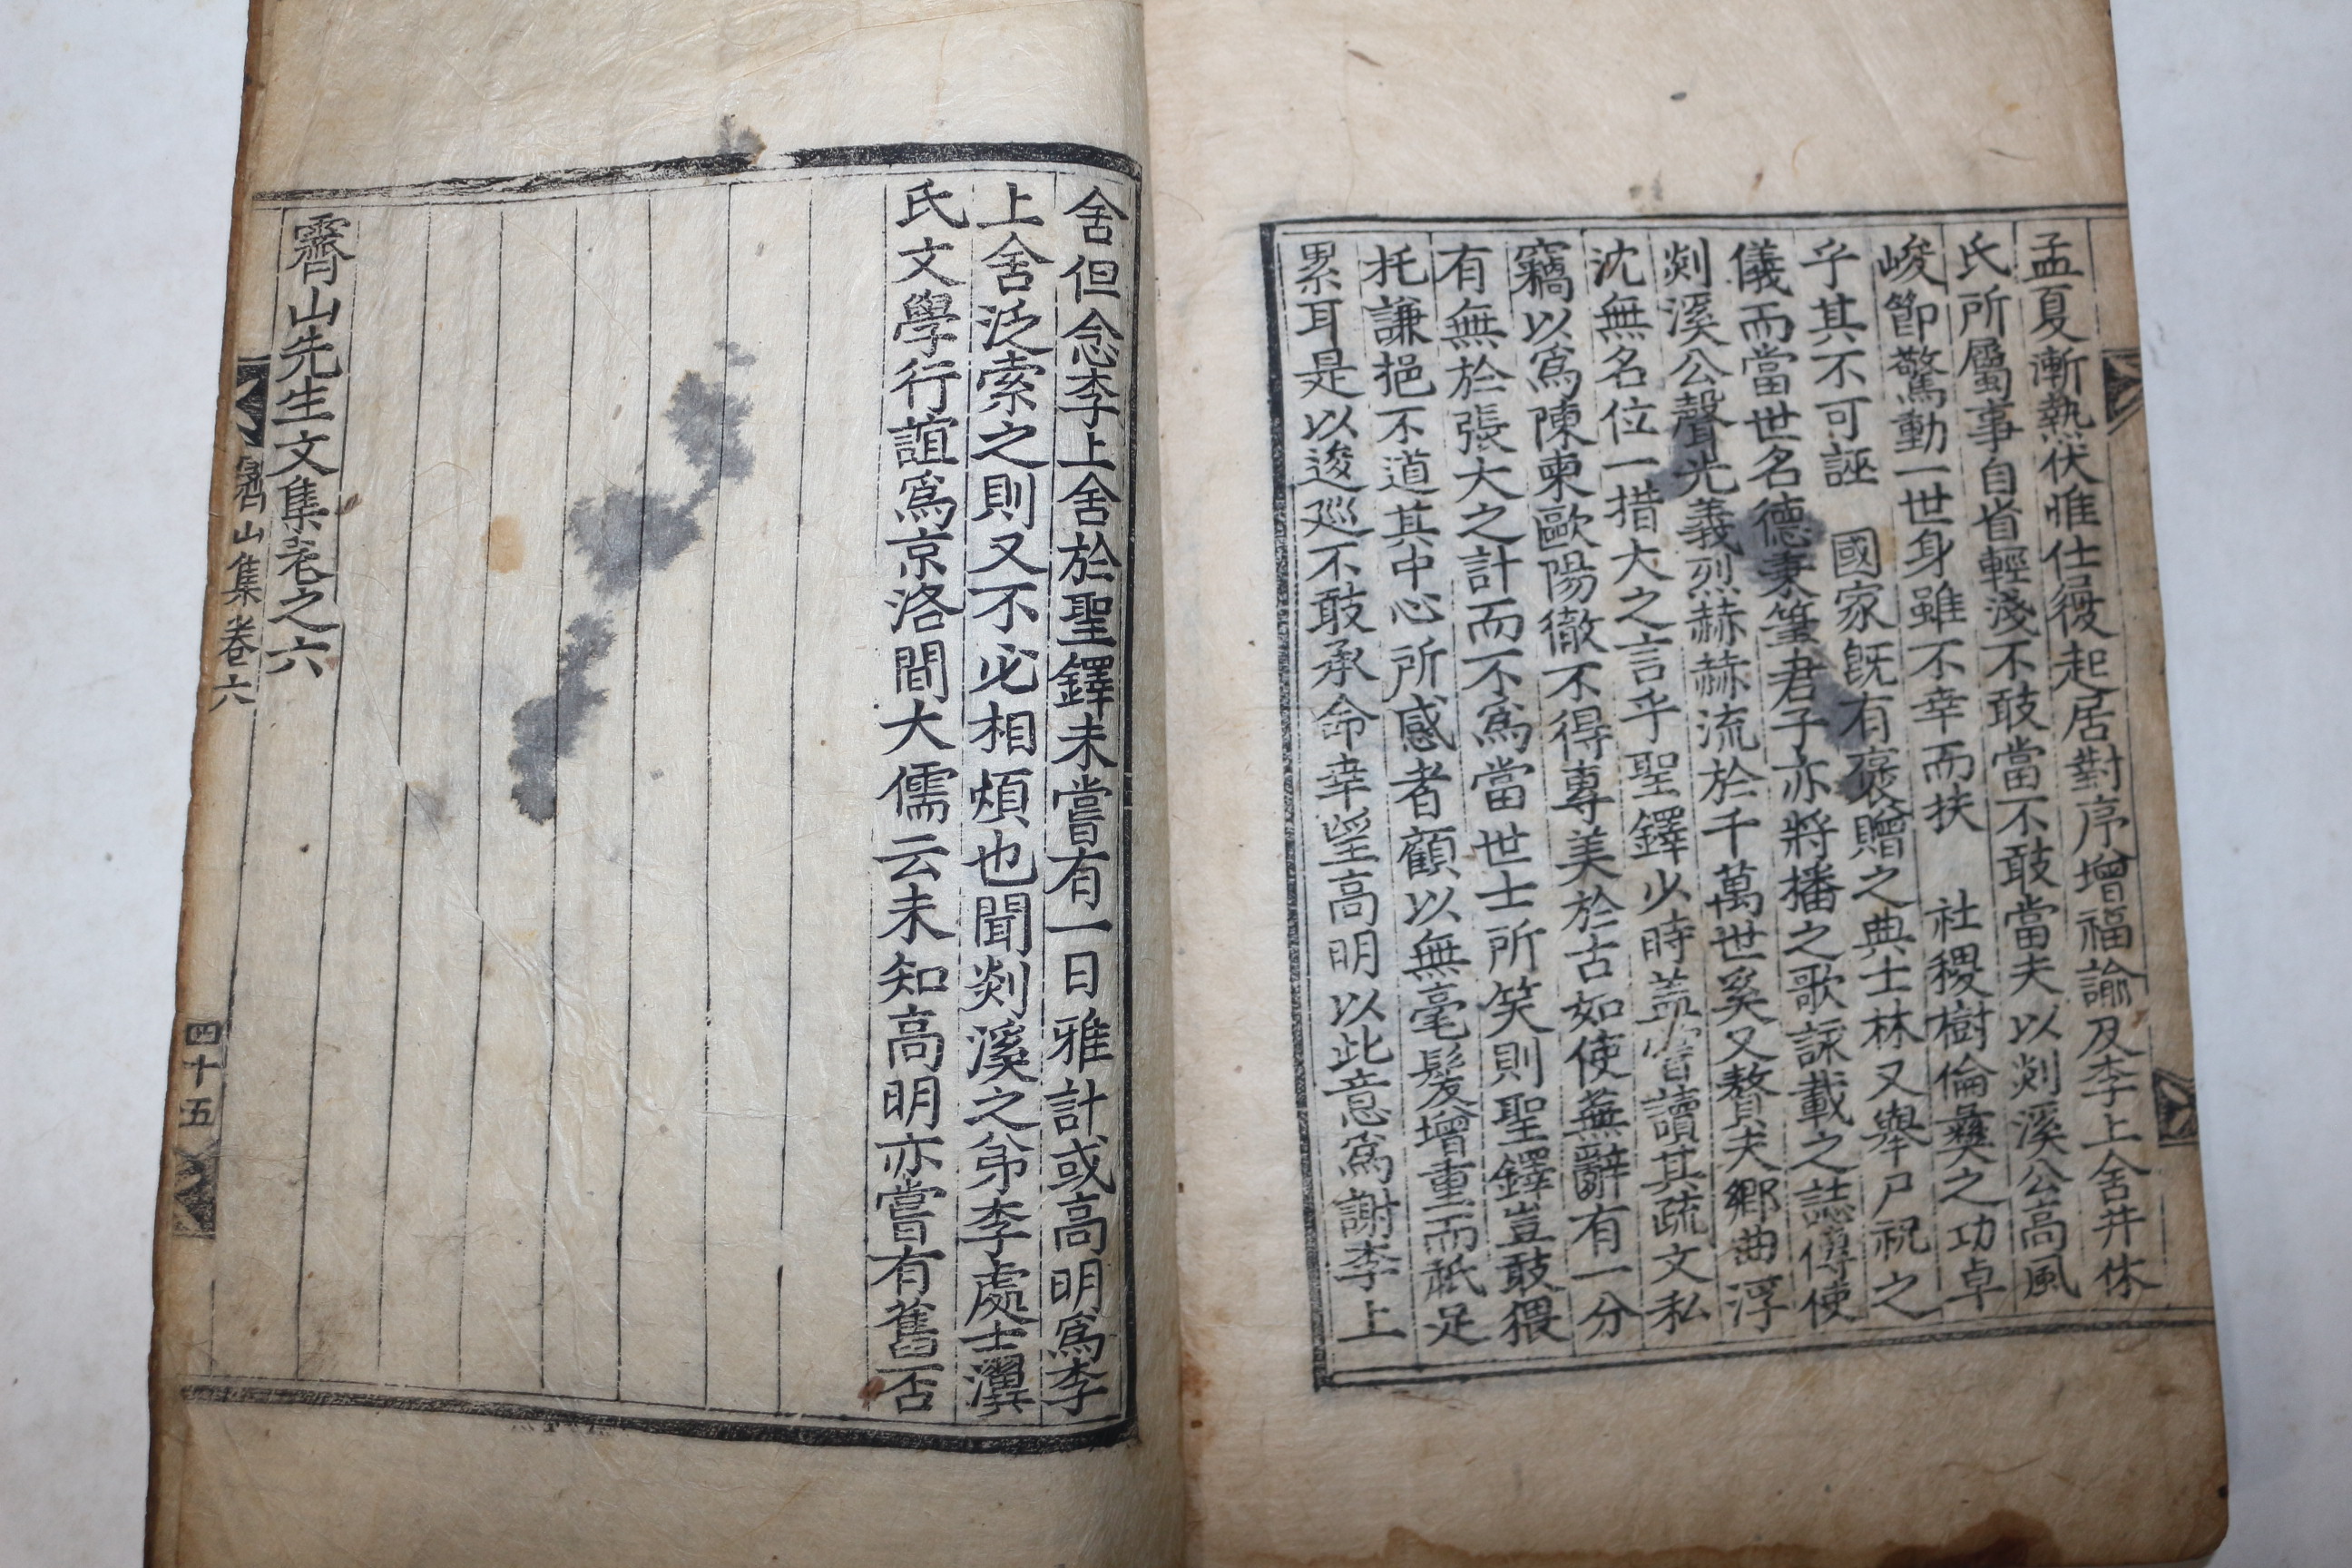 孟夏漸熱伏惟仕履起居對序增福諭及李上舍井休
氏所屬事自省輕淺不敢當不敢當夫以剡溪公高風
峻節驚動一世身雖不幸而扶 社稷樹倫彝之功卓
乎其不可誣 國家旣有褒贈之典士林又舉尸祝之
儀而當世名德秉筆君子亦將播之歌詠載之誌傳使
剡溪公聲光義烈赫赫流於千萬世奚又贅夫鄉曲浮
沈無名位一措大之言乎聖鐸少時盖嘗讀其疏文私
竊以爲陳東歐陽徹不得專美於古如使蕪辭有一分
有無於張大之計而不爲當世士所笑則聖鐸豈敢猥
托謙挹不道其中心所感者顧以無毫髮增重而祇足
累耳是以逡巡不敢承命幸望高明以此意爲謝李上
舍但念李上舍於聖鐸未嘗有一日雅計或高明爲李
上舍泛索之則又不必相煩也聞剡溪之弟李處士瀷
氏文學行誼爲京洛間大儒云未知高明亦嘗有舊否
霽山先生文集卷之六
霽山集 卷六
四十五